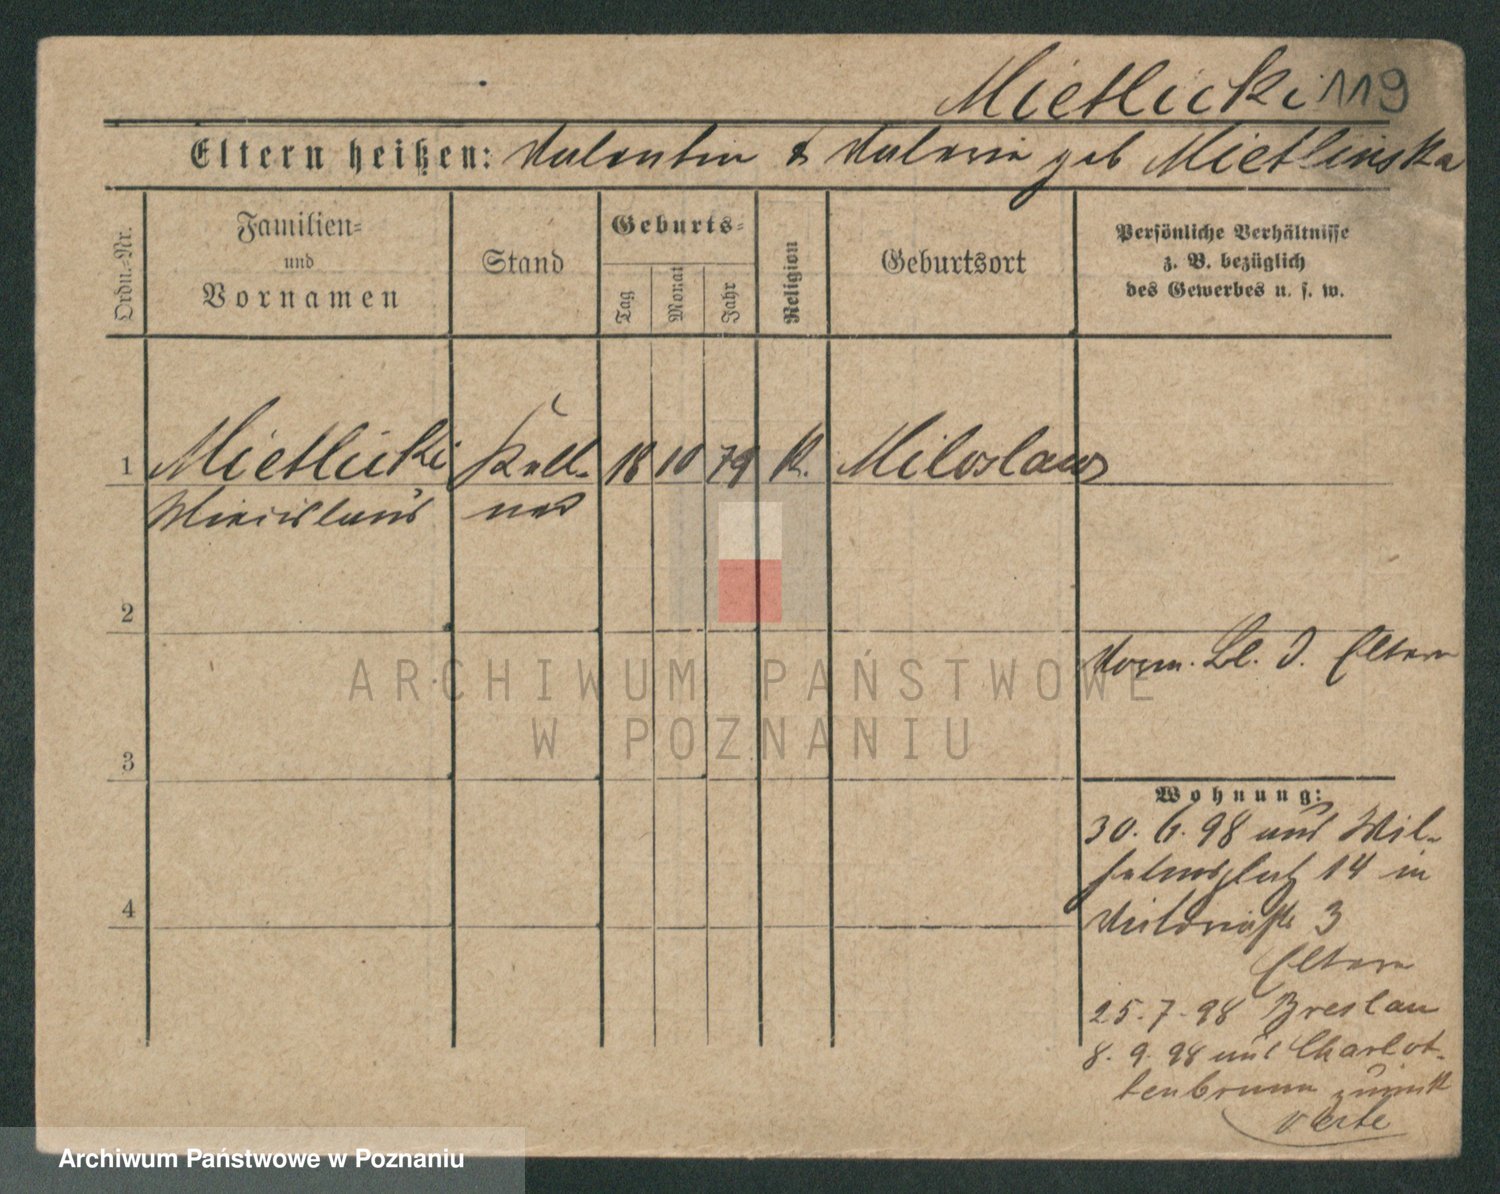 Mietlicki 119
Eltern heißen: Valentin & Valeria geb Mietlinska
Ordn.-Nr.
Familien-
und
Vornamen
Stand
Geburts-
Tag
Monat
Jahr
Religion
Geburtsort
Persönliche Verhältnisse
z. B. bezüglich
des Gewerbes u. s. w.
1 Mietlicki Kell- 18 10 79 K. Miloslaw
Miecislaus ner
2
Vorm. Bl. d. Eltern
3
Wohnung:
30. 6. 98 aus Wil-
helmsplatz 14 in
4
Victoriastr 3
Eltern
25. 7. 98 Breslau
8. 9. 98 aus Charlot-
tenbrunn zurück
verte
ARCHIWUM PAŃSTWOWE
W POZNANIU
Archiwum Państwowe w Poznaniu